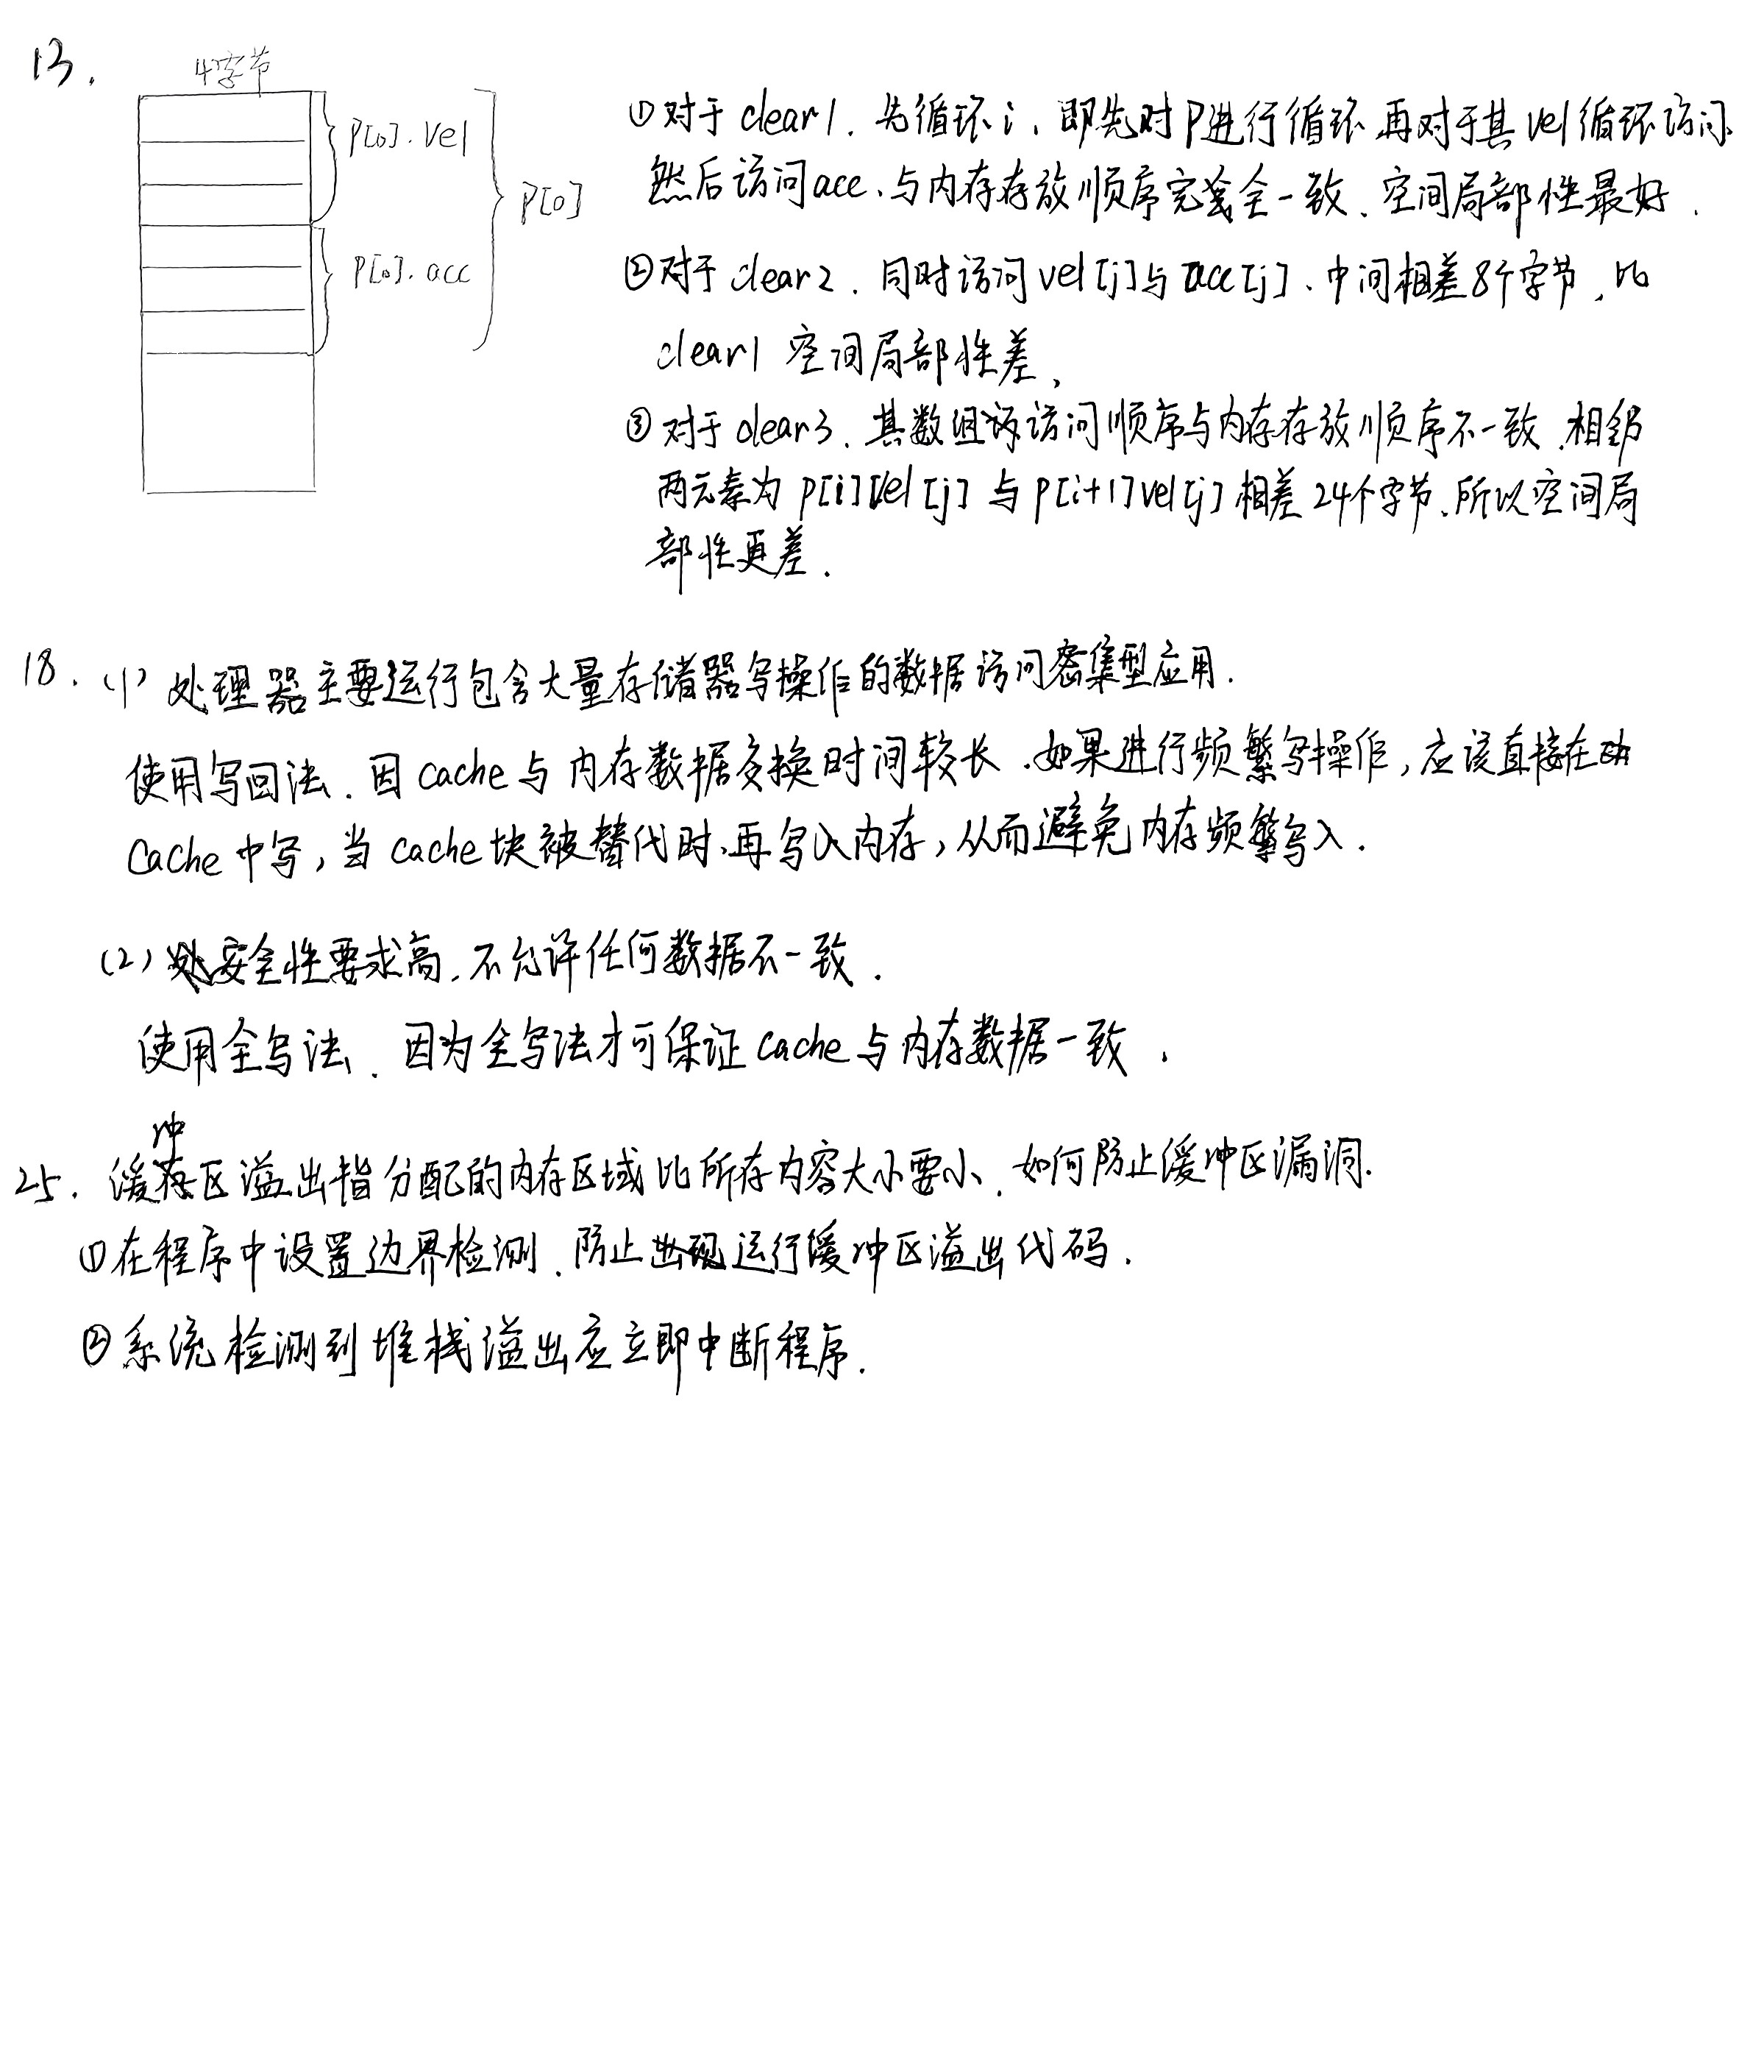 13.
4字节
P[0].vel
P[0].acc
P[0]
①对于clear1. 先循环i、即先对P进行循环再对于其vel循环访问
然后访问acc、与内存存放顺序完全一致、空间局部性最好.
②对于clear2. 同时访问vel[j]与acc[j]、中间相差8个字节, 比
clear1空间局部性差、
③对于clear3. 其数组访问顺序与内存存放顺序不一致.相邻
两元素为p[i]vel[j]与p[i+1]vel[j]相差24个字节、所以空间局
部性更差.
18. (1) 处理器主要运行包含大量存储器写操作的数据访问密集型应用.
使用写回法. 因cache与内存数据交换时间较长.如果进行频繁写操作, 应该直接在
Cache中写, 当cache块被替代时、再写入内存, 从而避免内存频繁写入.
(2) 安全性要求高. 不允许任何数据不一致.
使用全写法. 因为全写法才可保证cache与内存数据一致.
25. 缓冲区溢出指分配的内存区域比所存内容大小要小. 如何防止缓冲区漏洞.
①在程序中设置边界检测. 防止出现运行缓冲区溢出代码.
②系统检测到堆栈溢出应立即中断程序.